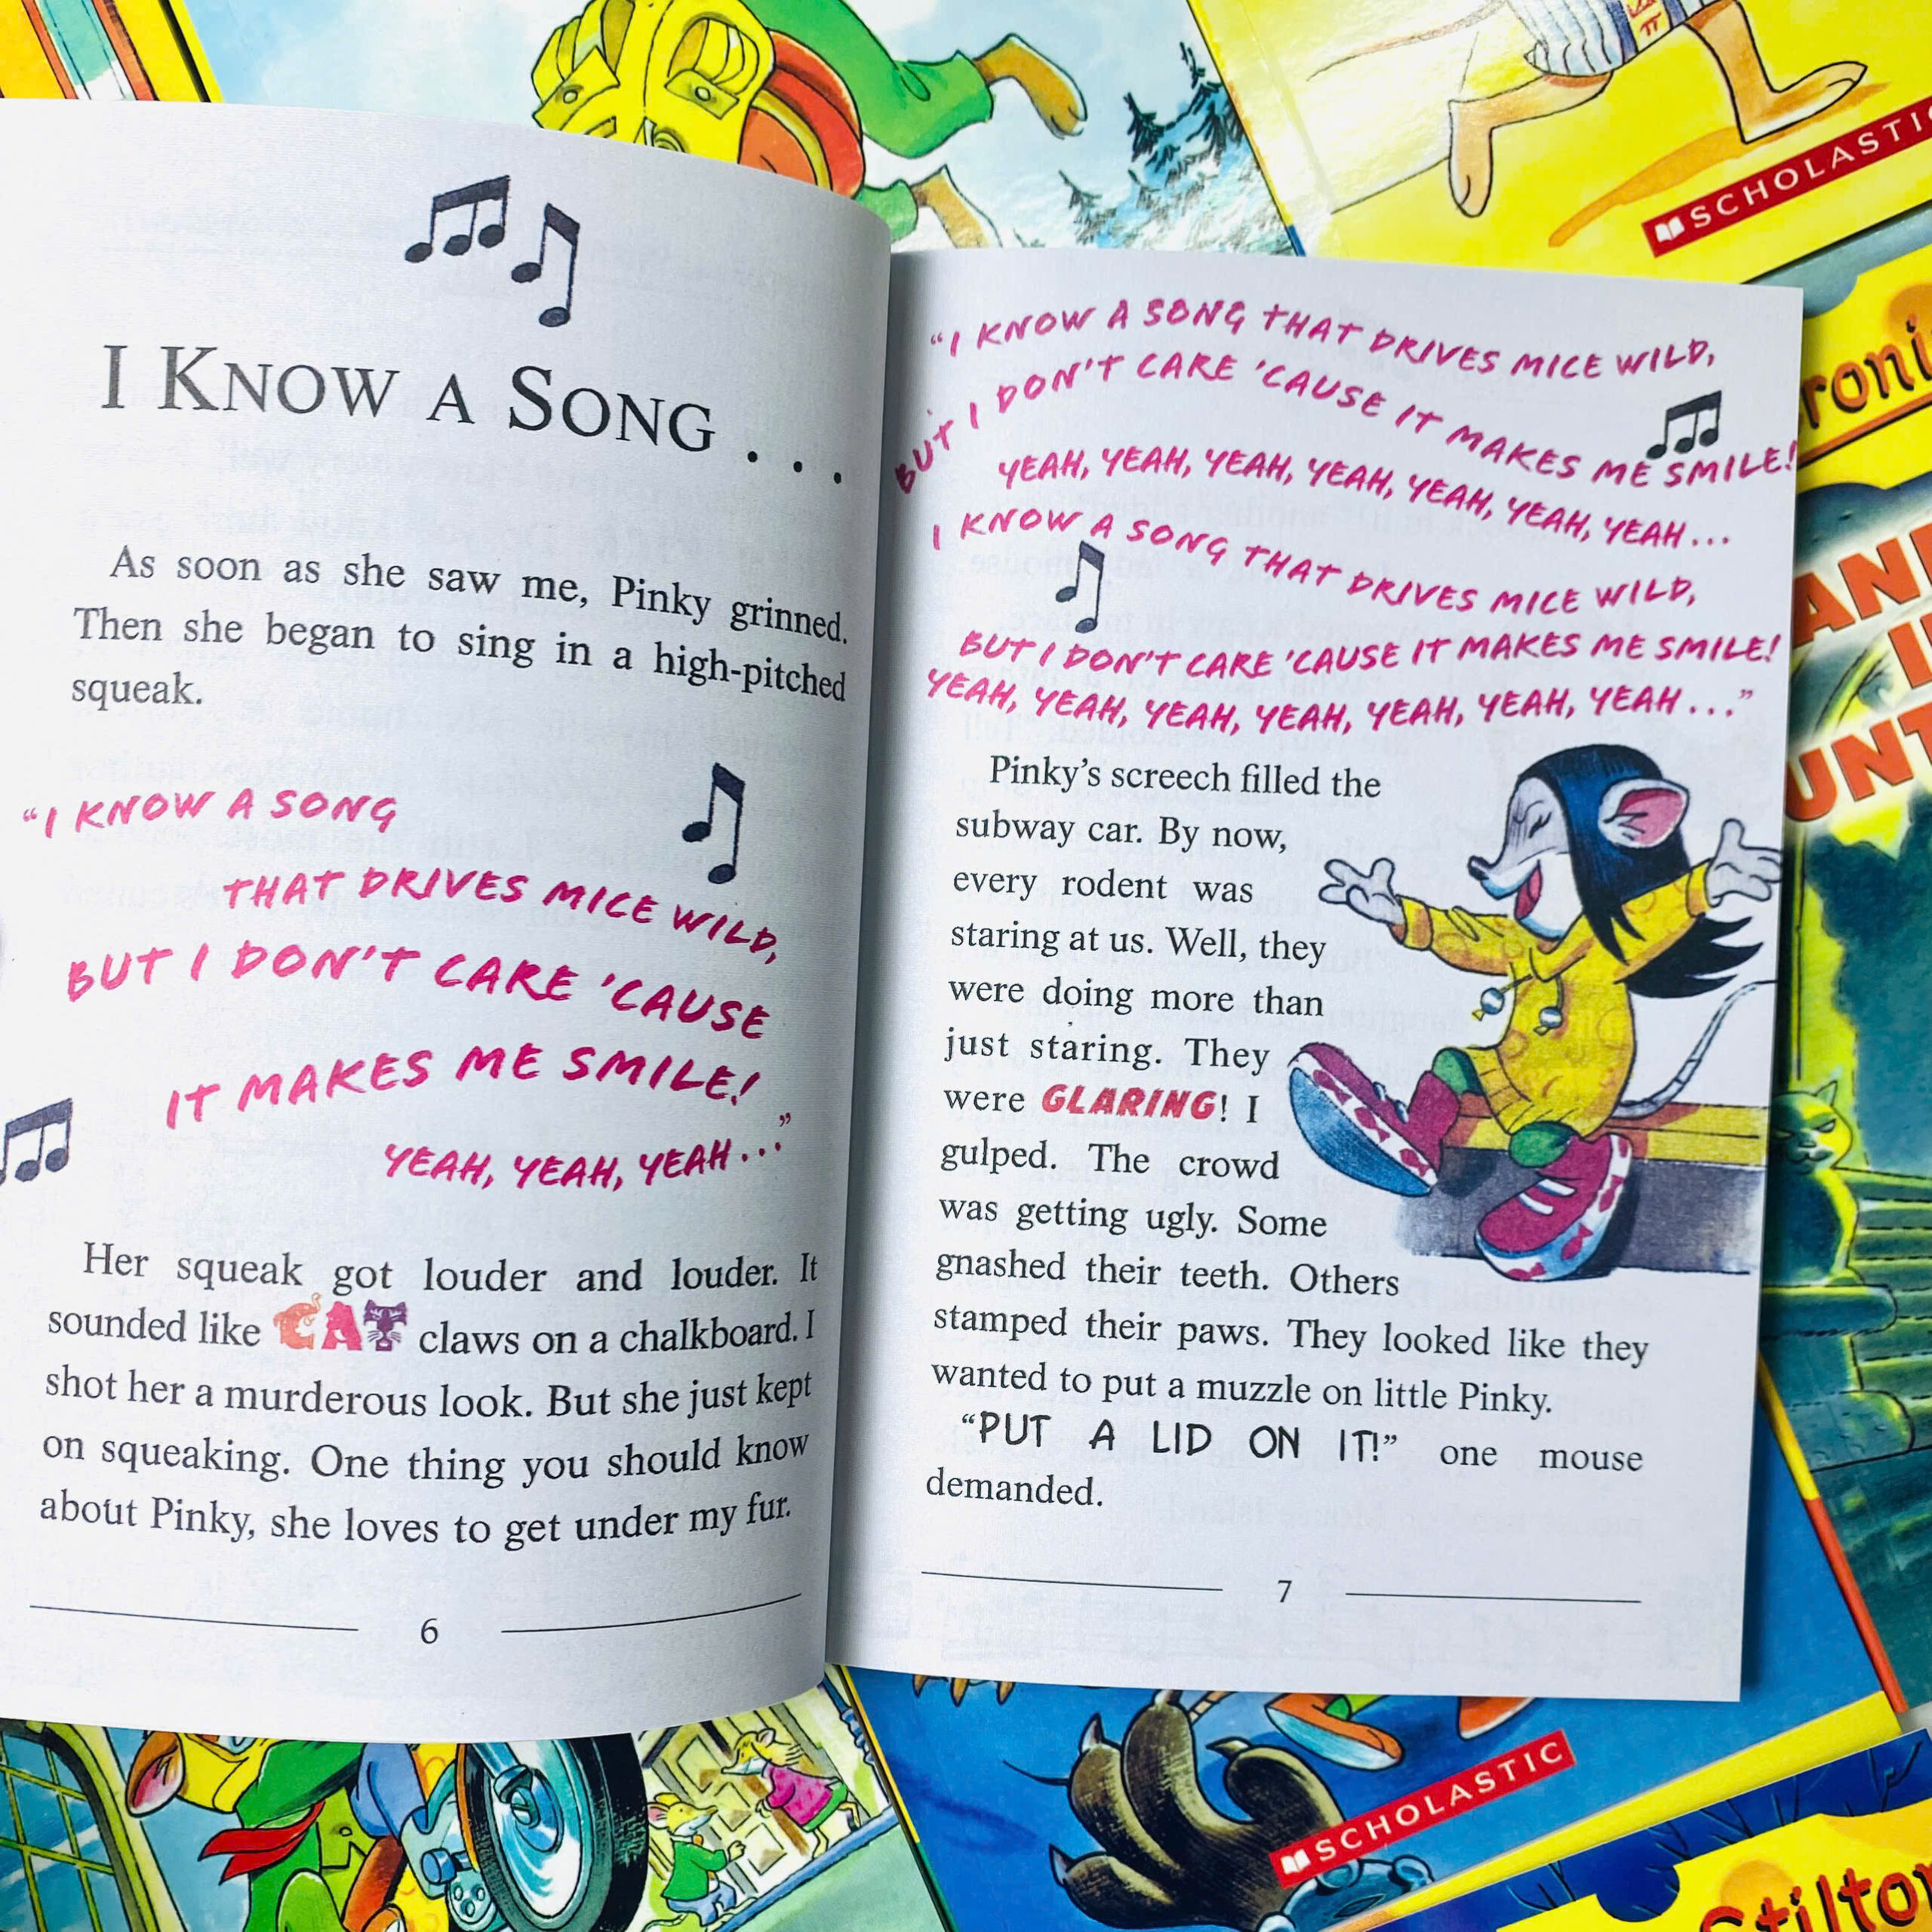 I KNOW A SONG . . .
As soon as she saw me, Pinky grinned.
Then she began to sing in a high-pitched
squeak.
“I KNOW A SONG
THAT DRIVES MICE WILD,
BUT I DON’T CARE ’CAUSE
IT MAKES ME SMILE!
YEAH, YEAH, YEAH...”
Her squeak got louder and louder. It
sounded like CAT claws on a chalkboard. I
shot her a murderous look. But she just kept
on squeaking. One thing you should know
about Pinky, she loves to get under my fur.
6
“I KNOW A SONG THAT DRIVES MICE WILD,
BUT I DON’T CARE ’CAUSE IT MAKES ME SMILE!
YEAH, YEAH, YEAH, YEAH, YEAH, YEAH, YEAH...
I KNOW A SONG THAT DRIVES MICE WILD,
BUT I DON’T CARE ’CAUSE IT MAKES ME SMILE!
YEAH, YEAH, YEAH, YEAH, YEAH, YEAH, YEAH...”
Pinky’s screech filled the
subway car. By now,
every rodent was
staring at us. Well, they
were doing more than
just staring. They
were GLARING! I
gulped. The crowd
was getting ugly. Some
gnashed their teeth. Others
stamped their paws. They looked like they
wanted to put a muzzle on little Pinky.
“PUT A LID ON IT!” one mouse
demanded.
7
SCHOLASTIC
SCHOLASTIC